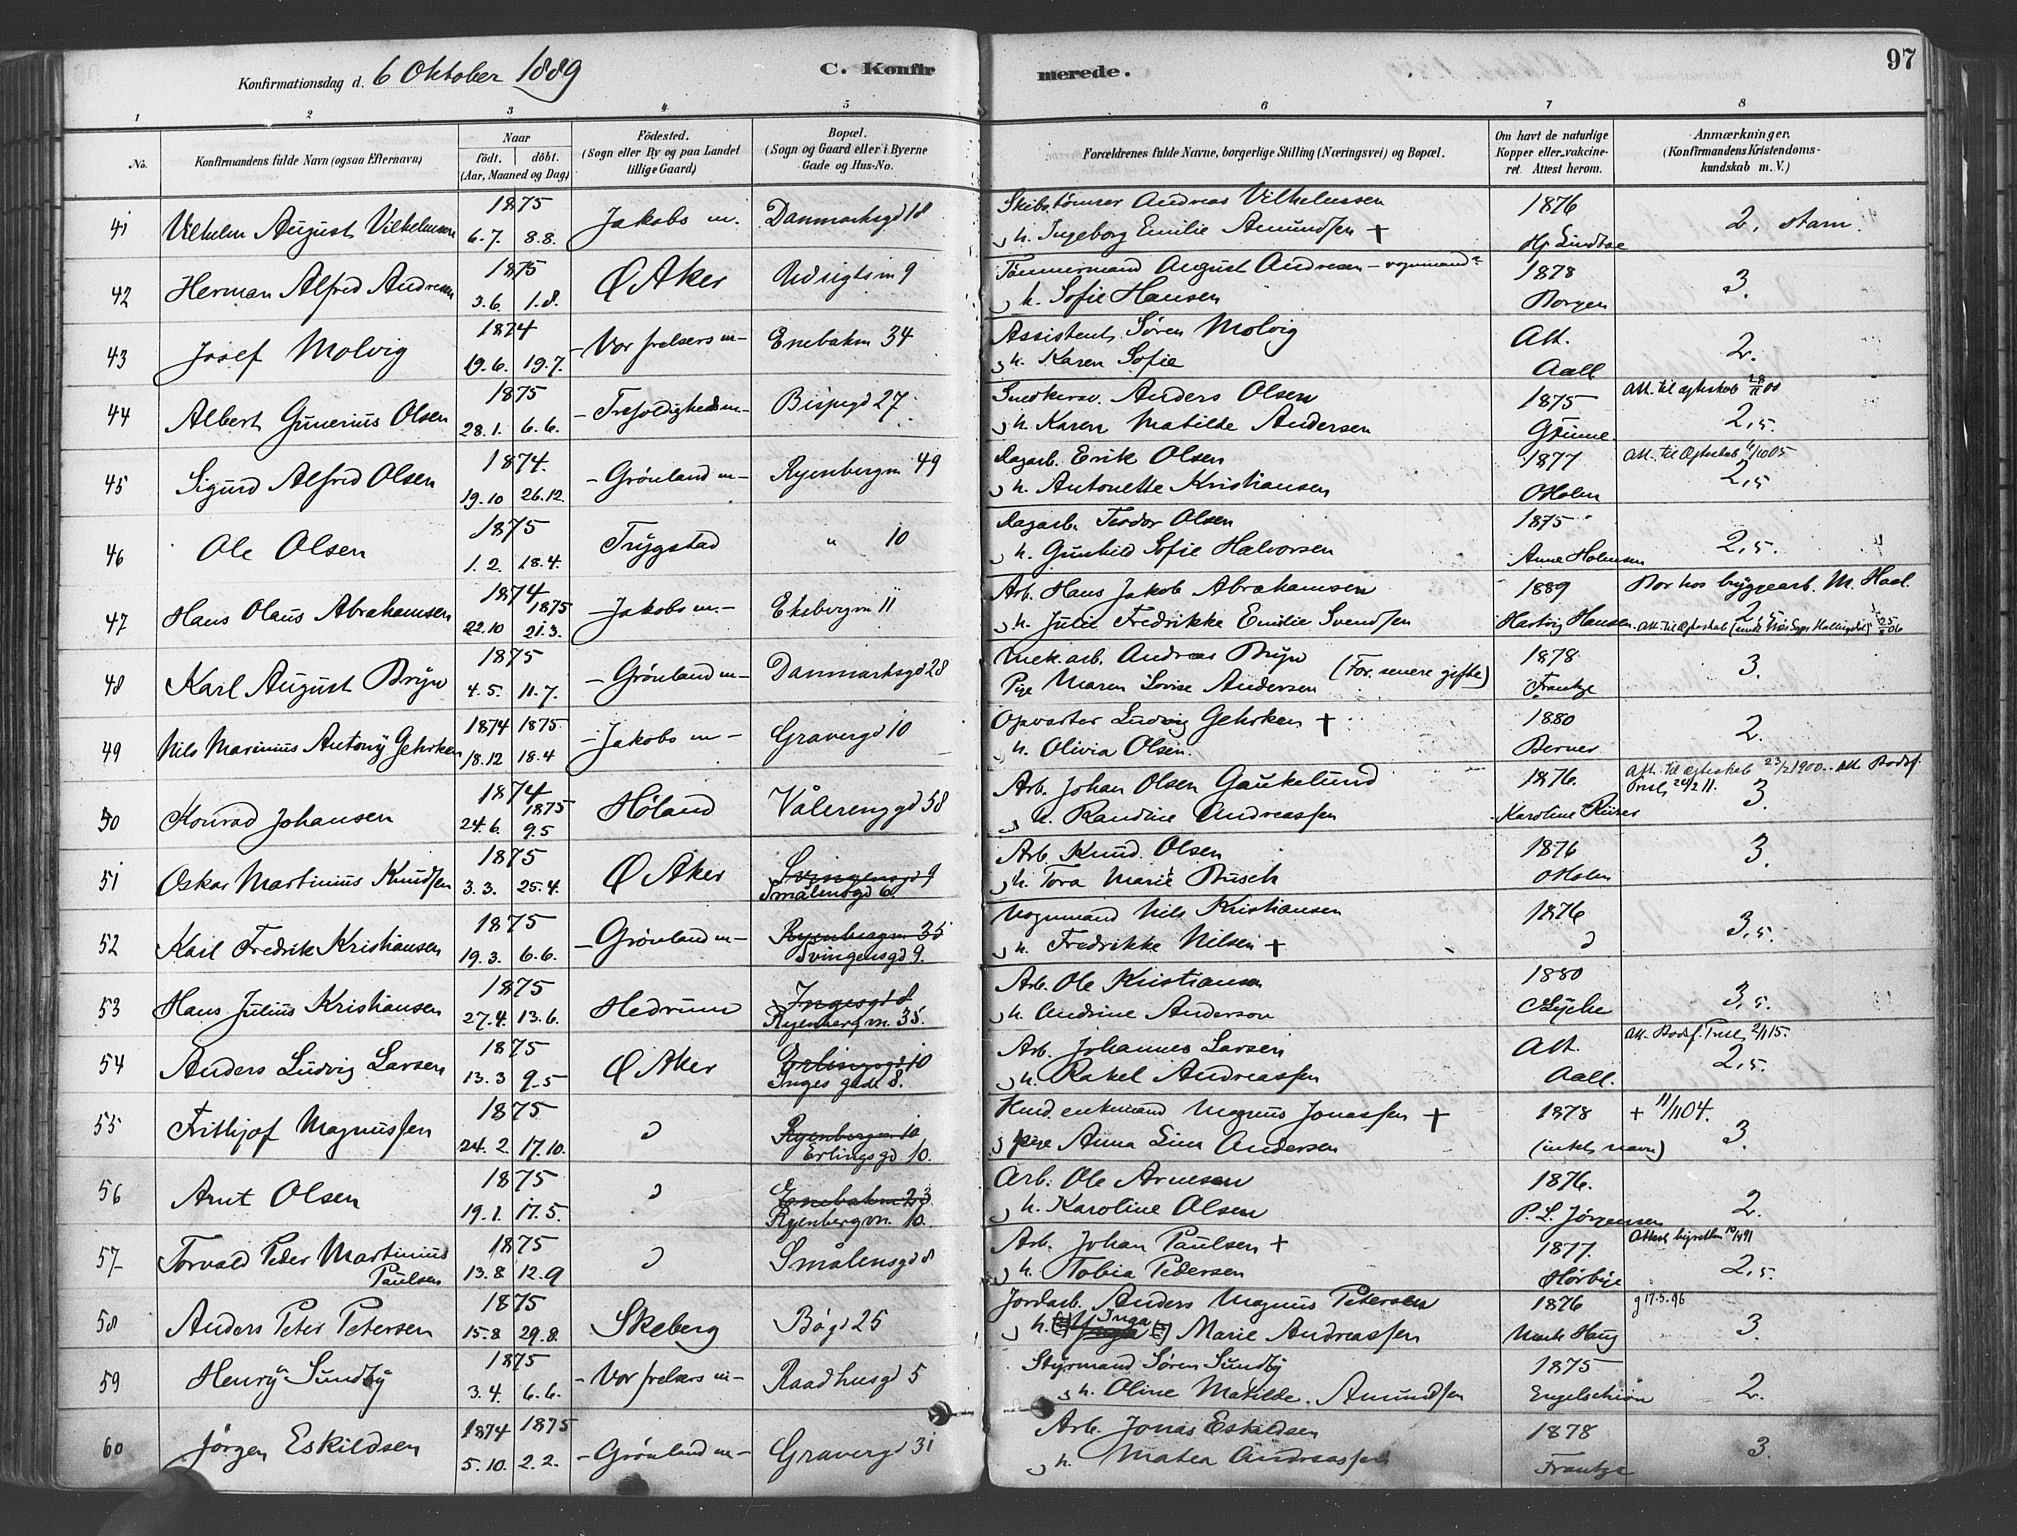 Konfirmationsdag d. 6 Oktober 1889
C. Konfirmerede.
97
1 2 3 4 5 6 7 8
No.
Konfirmandens fulde Navn (ogsaa Efternavn)
Naar født. døbt. (Aar, Maaned og Dag)
Fødested. (Sogn eller By og paa Landet tillige Gaard)
Bopæl. (Sogn og Gaard eller i Byerne Gade og Hus-No.
Forældrenes fulde Navne, borgerlige Stilling (Næringsvei) og Bopæl.
Om havt de naturlige Kopper eller vakcineret. Attest herom.
Anmærkninger. (Konfirmandens Kristendomskundskab m. V.)
41 Vilhelm August Vilhelmsen 1875 6.7. 8.8. Jakobs m. Danmarksgd 18 Skibstømrer Andreas Vilhelmsen 1876 2, stam.
h. Ingeborg Emilie Amundsen +
42 Herman Alfred Andresen 1875 3.6. 1.8. Ø Aker Udsigtsm 9 Tømmermand August Andresen - vognmand 1878 3.
h. Sofie Hansen Borgen
43 Josef Molvig 1874 19.6. 19.7. - Vor frelsers m - Enebakm 34 Assistent Søren Molvig Att. 2.
h. Karen Sofie Aall
44 Albert Gunerius Olsen 1875 28.1. 6.6. - Trefoldigheds m - Bispegd 27 Snedkersv. Anders Olsen 1875 Att. til ægteskab 28/11 00 2,5
h. Karen Matilde Andersen
45 Sigurd Alfred Olsen 1874. 19.10 26.12. - Grønland m - Ryenbergm 49 Dagarb. Erik Olsen 1877 Att. til Ægteskab 6/10 05 2,5
h. Antonette Kristiansen O Holm
46 Ole Olsen 1875 1.2. 18.4. Trygstad " 10 Dagarb. Teodor Olsen 1875 2,5.
h. Gunhild Sofie Halvorsen Anne Holmsen
47 Hans Olaus Abrahamsen 1874 1875 22.10 21.3. - Jakobs m. - Ekebergm 11 Arb. Hans Jakob Abrahamsen 1889 Bor hos byggearb. M. Haal.
h. Julie Fredrikke Emilie Svendsen Hartvig Hansen
48 Karl August Bryn 1875 4.5. 11.7. - Grønland m - Danmarksgd 28 Mek. arb. Andreas Bryn (For. senere gifte) 1878 3.
Pige Maren Lovise Andersen Frantze
49 Nils Marinius Antony Gehrken 1874 1875. 18.12 18.4 - Jakobs m - Gravergd 10 Opvarter Ludvig Gehrken + 1880 2.
h. Olivia Olsen. Berner
50 Konrad Johansen 1874 1875 24.6. 9.5 Høland Vålerenggd 58 Arb. Johan Olsen Gaukelund 1876. Att. til Ægteskab 23/2 1900. 3.
h. Randine Andreassen Karoline Kiærer
51 Oskar Martinius Knudsen 1875 3.3. 25.4. Ø Aker Svingensgd 9 Smålensgd 6. Arb. Knud Olsen 1876 3.
h. Tora Marie Busch O Holm
52 Karl Fredrik Kristiansen 1875 19.3. 6.6. - Grønland m - Ryenbergm 35 Svingensgd 9. Vognmand Nils Kristiansen 1876 3,5.
h. Fredrikke Nilsen +
53 Hans Julius Kristiansen 1875 27.4. 13.6. Hedrum Ingesgd 8 Ryenberg m. 35. Arb. Ole Kristiansen 1880 3,5.
h. Andrine Anderson
54 Anders Ludvig Larsen 1875 13.3 9-5 Ø Aker Erlingsgd 10 Inges gade 8. Arb. Johannes Larsen Att. 2,5.
h. Rakel Andreassen Aall.
55 Frithjof Magnussen 1875 24.2 17.10. Ryenbergm 10 Erlingsgd 10. enkemand Magnus Jonassen + 1878 + 11/11 04. 3.
pige Anna Lina Andersen (intet navn)
56 Arnt Olsen 1875 19.1. 17.5. Enebakm 23 Ryenberg m. 10. Arb. Ole Arnesen 1876. 2.
h. Karoline Olsen P. L. Jørgensen
57 Torvald Peder Martinius Paulsen 1875 13.8 12.9 Smålensgd 8 Arb. Johan Paulsen + 1877. 2,5.
h. Tobia Pedersen Hørbye
58 Anders Peter Petersen 1875 15.8 29.8. Skeberg Bøgd 25 Jordarb. Anders Magnus Petersen 1876 g 17.5.96 3.
h. Inga Marie Andreassen
59 Henry Sundby 1875 3.4. 6.6. - Vor frelsers m - Raadhusgd 5 Styrmand Søren Sundby 1875 2.
h. Oline Matilde Amundsen Engelschiøn
60 Jørgen Eskildsen 1874 1875 5.10. 2.2. - Grønland m - Gravergd 31 Arb. Jonas Eskildsen 1878 3.
h. Matea Andreassen Frantze